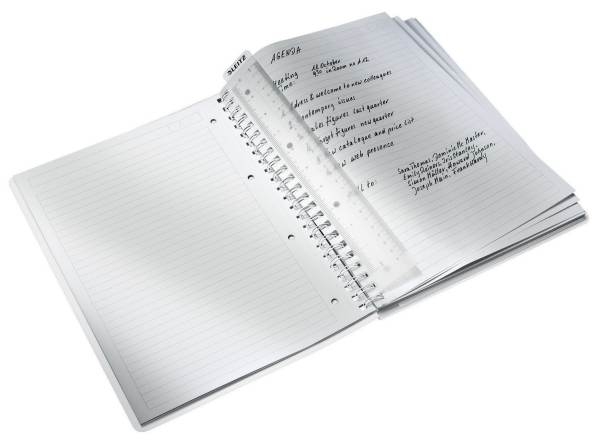 LEITZ
AGENDA
Meeting 12. October
Time: 9:30 in Room no 4.12
dress & welcome to new colleagues
ntemporary issues
ales figures last quarter
get figures new quarter
w catalogue and price list
w web presence
l to:
Sara Thomas, Dominielle Master,
Emily Reiners, Iris Stanley,
Simon Miller, Howard Johnson,
Joseph Main, Frank Hardy